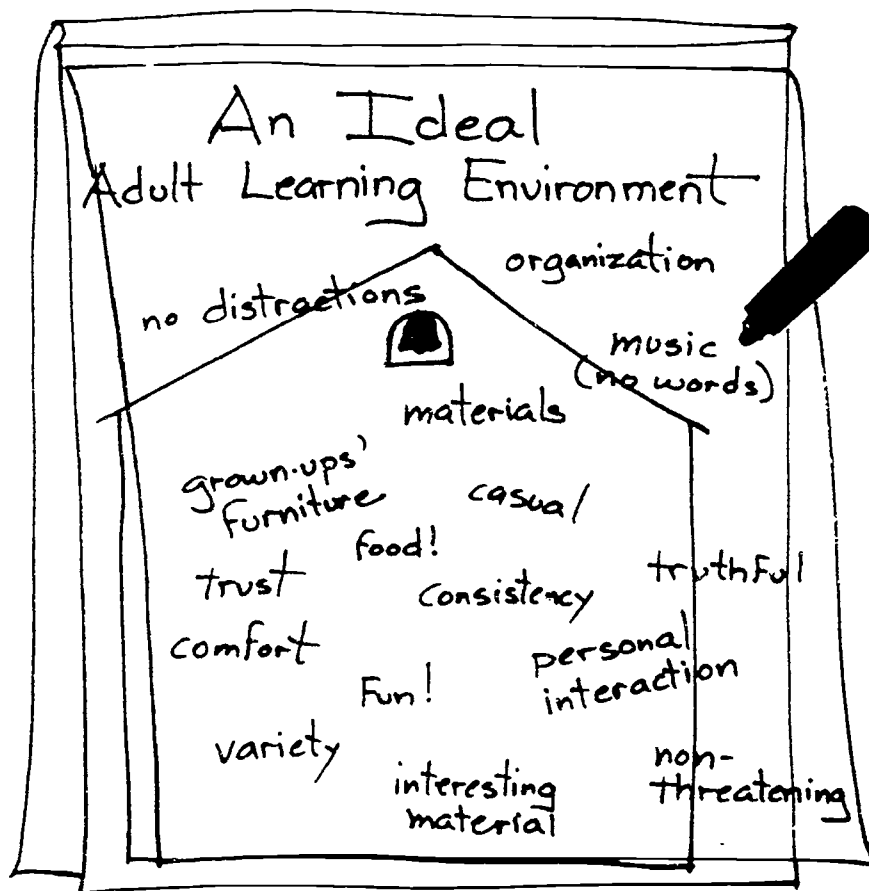 An Ideal
Adult Learning Environment
organization
no distractions
music
(no words)
materials
grown-ups'
furniture
casual
food!
trust
consistency
truthful
comfort
personal
interaction
Fun!
variety
interesting
material
non-
threatening